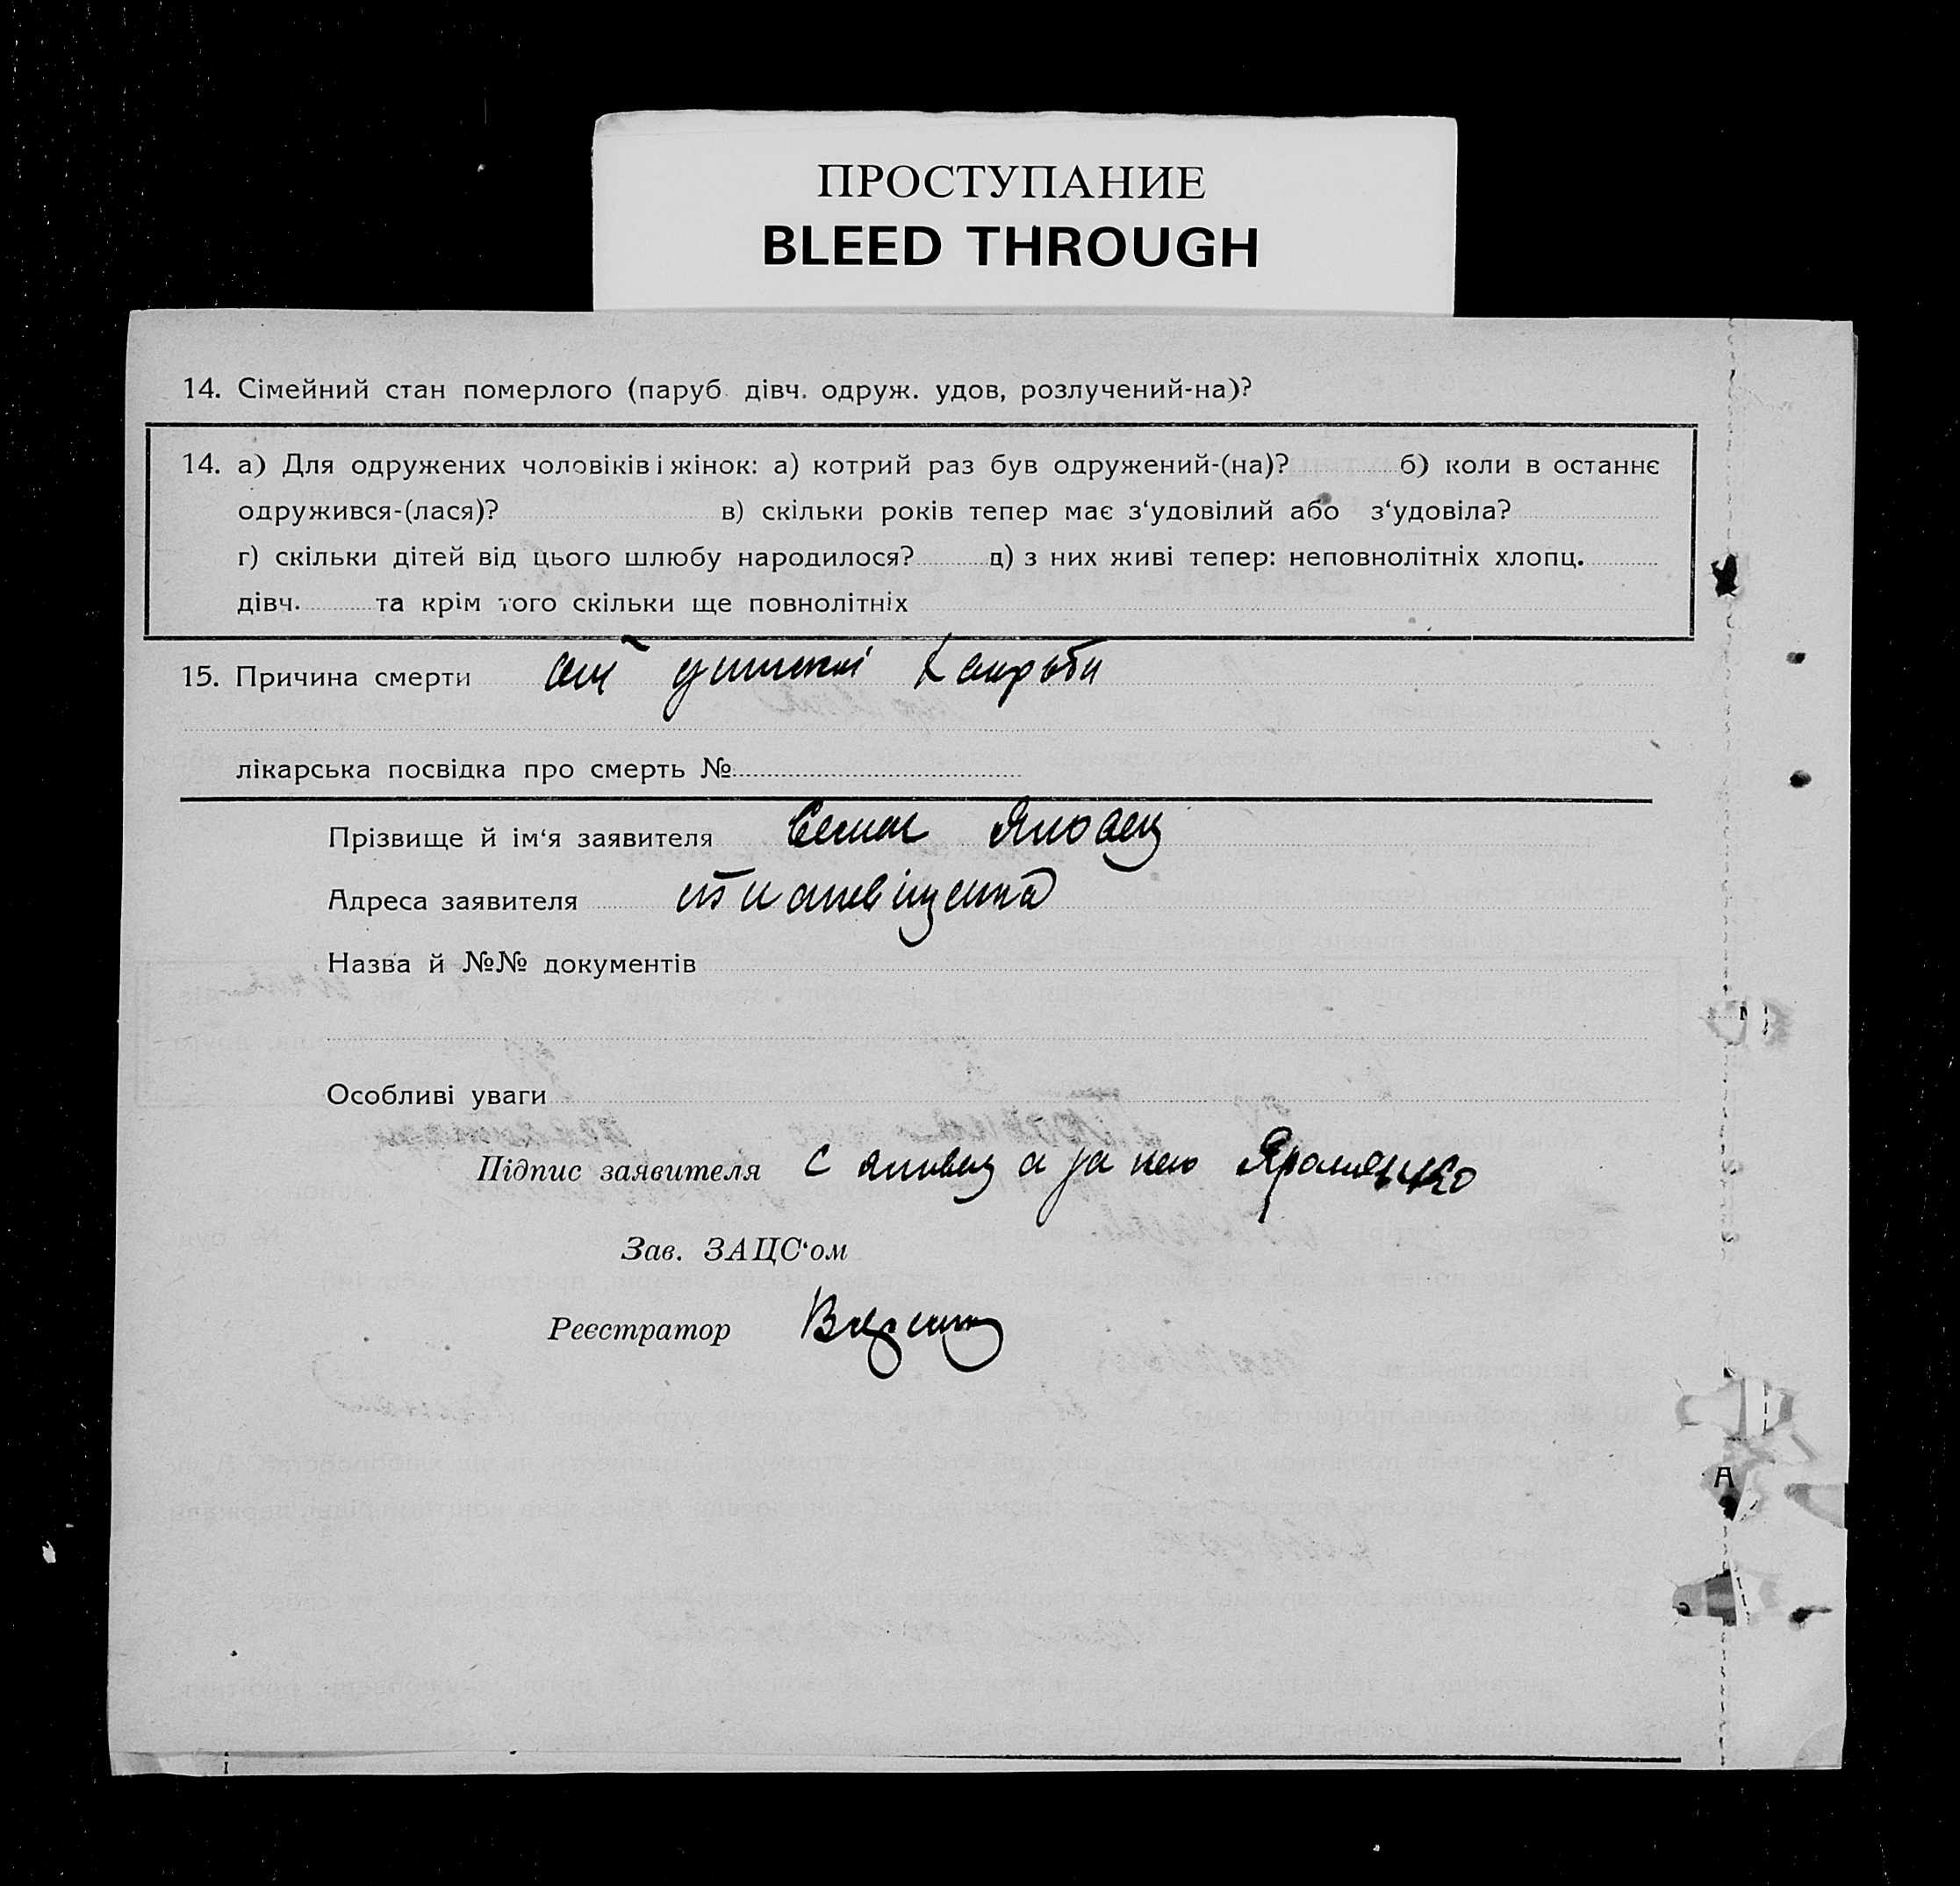 ПРОСТУПАНИЕ
BLEED THROUGH
14. Сімейний стан померлого (паруб. дівч. одруж. удов, розлучений-на)?
14. а) Для одружених чоловіків і жінок: а) котрий раз був одружений-(на)? б) коли в останнє
одружився-(лася)? в) скільки років тепер має з‘удовілий або з‘удовіла?
г) скільки дітей від цього шлюбу народилося? д) з них живі тепер: неповнолітніх хлопц.
дівч. та крім того скільки ще повнолітніх
15. Причина смерти
лікарська посвідка про смерть №
Прізвище й ім‘я заявителя Семен Яловец
Адреса заявителя
Назва й №№ документів
Особливі уваги
Підпис заявителя С Яловец а за него
Зав. ЗАЦС‘ом
Реєстратор